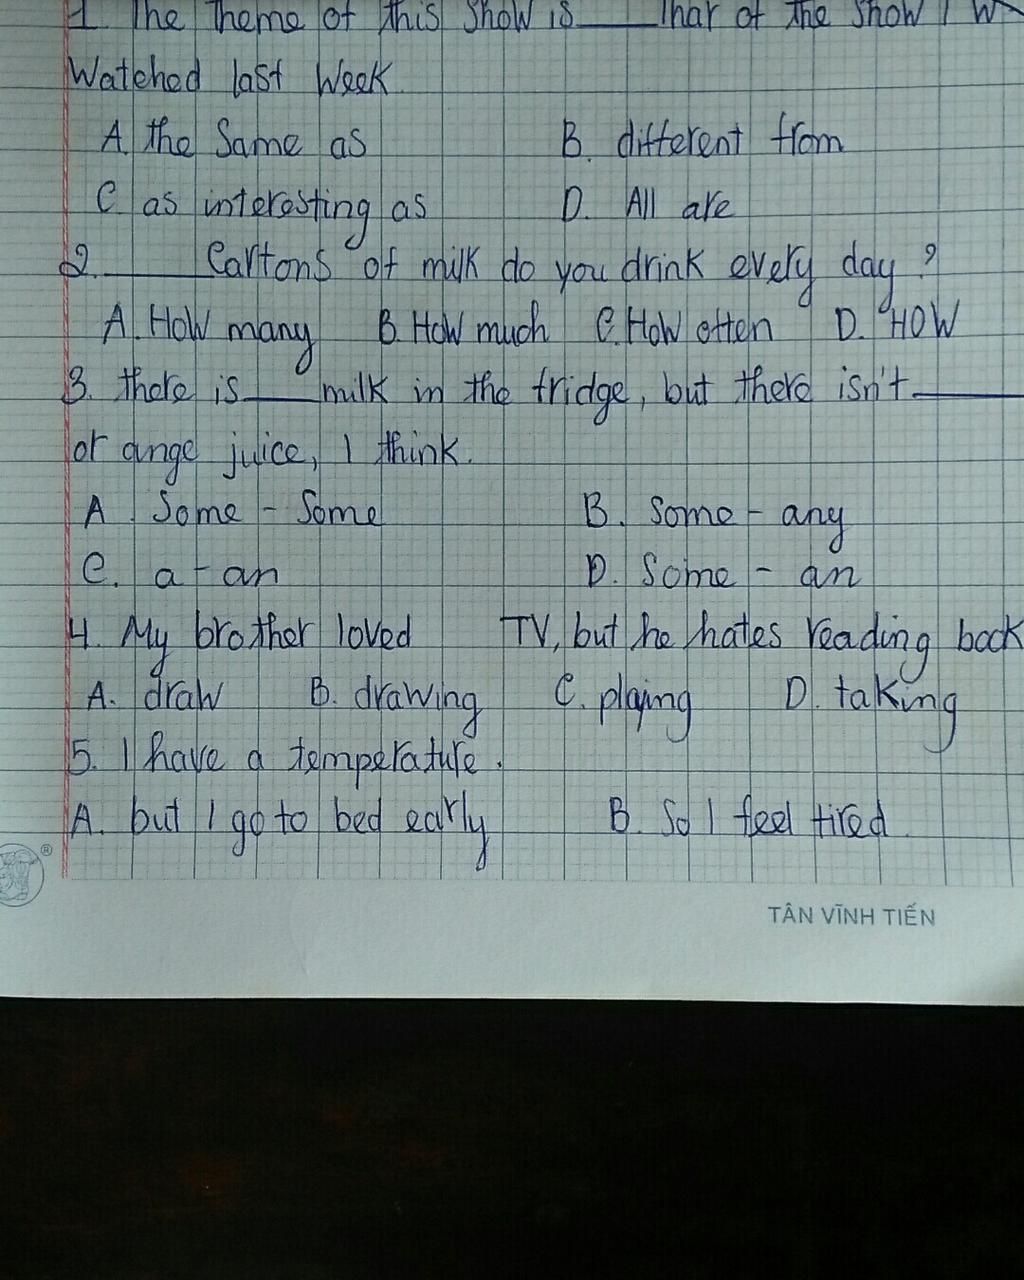 1. The theme of this show is____ that of the show I W
Watched last Week.
A. the Same as B. different from
C. as interesting as D. All are
2.____ Cartons of milk do you drink every day?
A. How many B. How much C. How often D. HOW
3. there is____milk in the fridge, but there isn't____
or ange juice, I think.
A. Some - Some B. Some - any
C. a - an D. Some - an
4. My brother loved TV, but he hates reading book
A. draw B. drawing C. playing D. taking
5. I have a temperature.
A. but I go to bed early B. So I feel tired.
®
TÂN VĨNH TIẾN